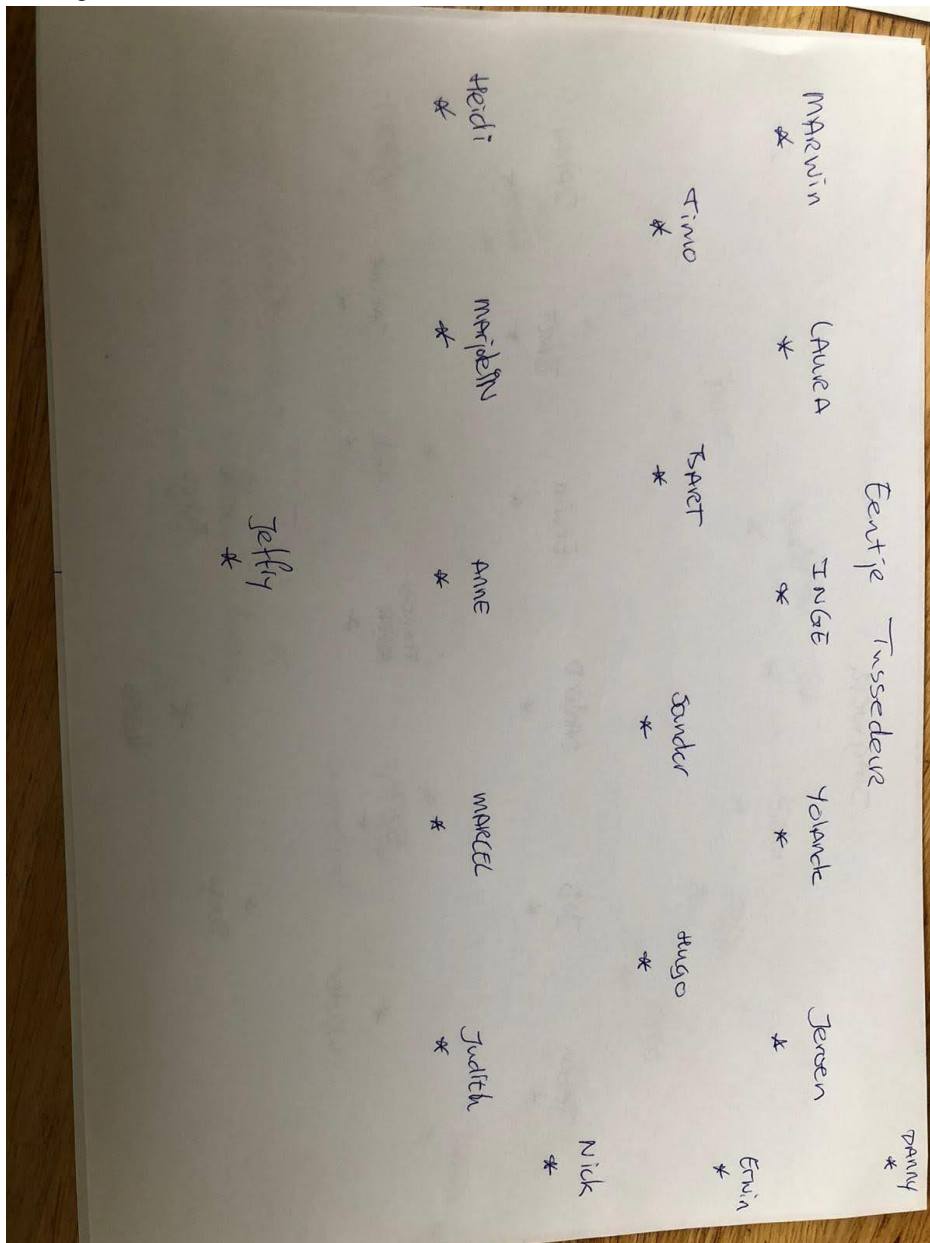 Eentje Tussedeur
DANNY
MARWin LAURA INGE Yolande Jeroen
Erwin
Timo BART Sander Hugo
Nick
Heidi MArjolein ANNE MARCEL Judith
Jeffry